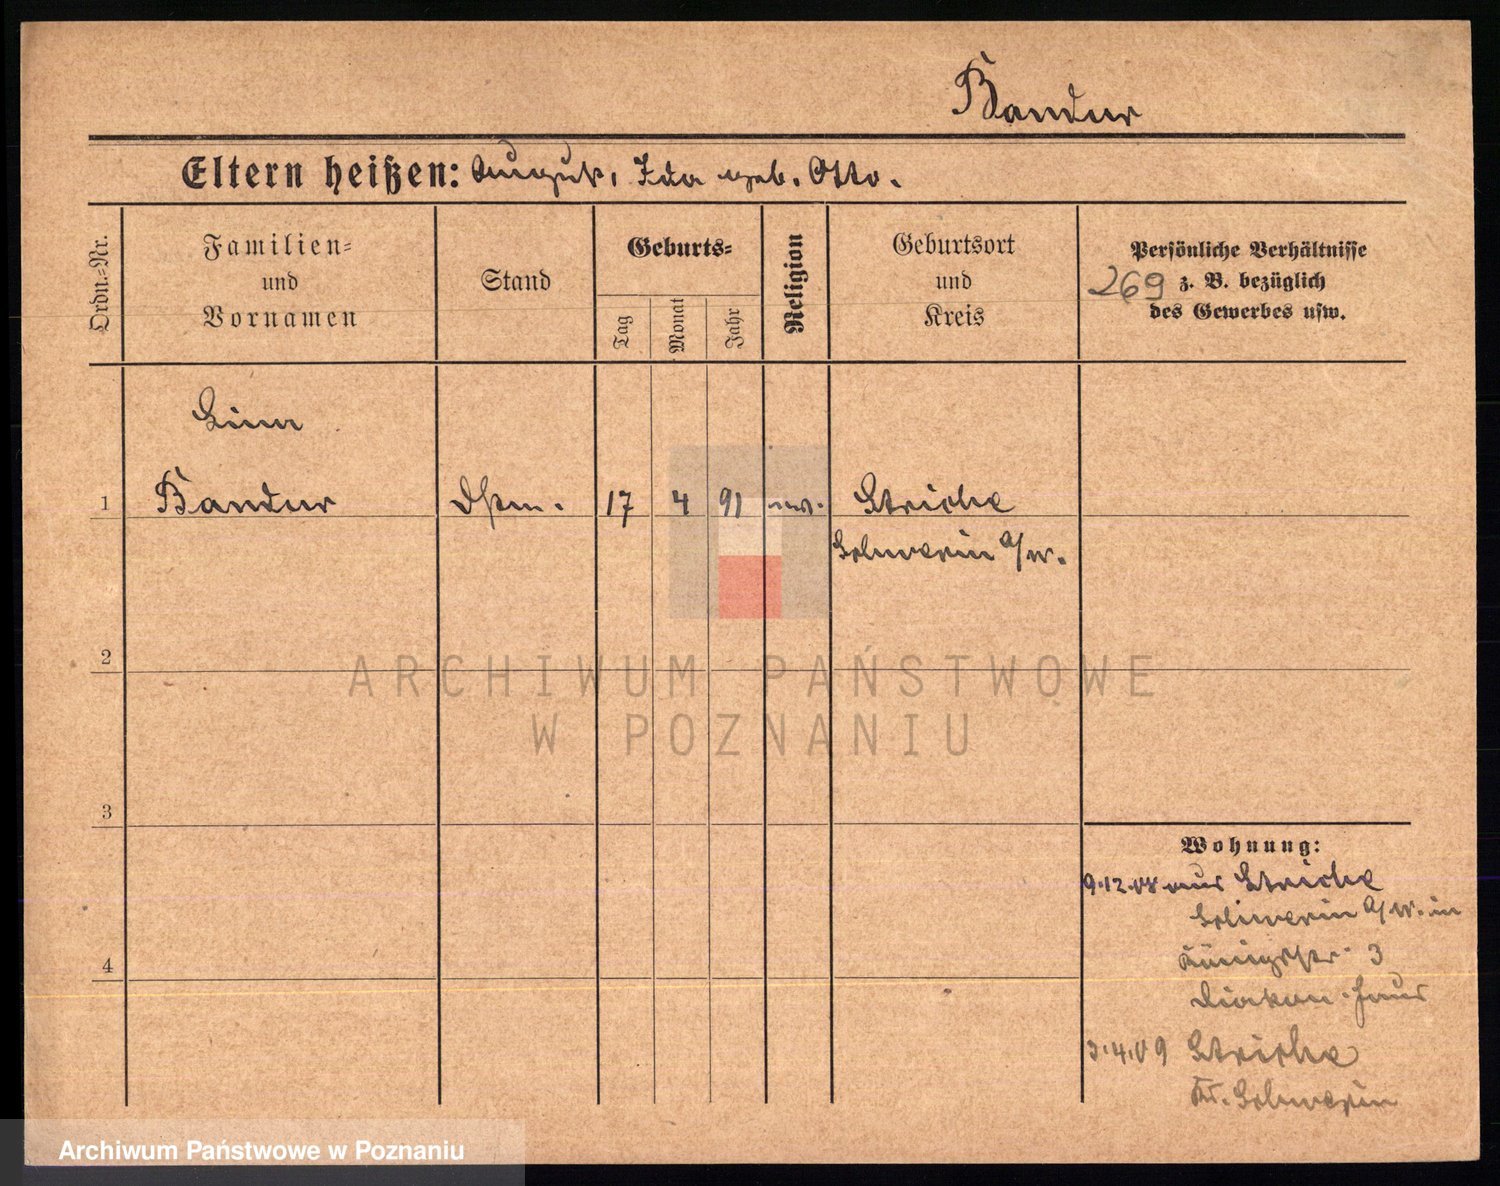 Bandur
Eltern heißen: August, Ida geb. Otto.
Ordn.-Nr.
Familien-
und
Vornamen
Stand
Geburts-
Tag
Monat
Jahr
Religion
Geburtsort
und
Kreis
Persönliche Verhältnisse
269 z. B. bezüglich
des Gewerbes usw.
Bandur
1
17 4 91
Striche
Schwerin a/W.
2
3
4
Wohnung:
9.12.08 aus Striche
Schwerin a/W. in
Königstr. 3
Diakon. Haus
3.4.09 Striche
Kr. Schwerin
ARCHIWUM PAŃSTWOWE
W POZNANIU
Archiwum Państwowe w Poznaniu